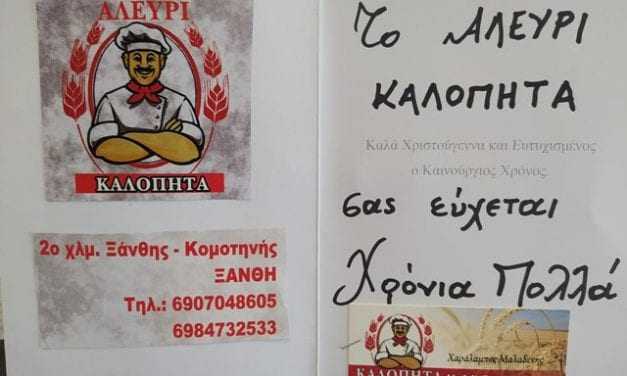 ΑΛΕΥΡΙ
ΚΑΛΟΠΗΤΑ
2ο χλμ. Ξάνθης - Κομοτηνής
ΞΑΝΘΗ
Τηλ.: 6907048605
6984732533
Το ΑΛΕΥΡΙ
ΚΑΛΟΠΗΤΑ
Καλά Χριστούγεννα και Ευτυχισμένος
ο Καινούργιος Χρόνος
σας εύχεται
Χρόνια Πολλά
Χαράλαμπος Μαλαδένης
ΚΑΛΟΠΗΤΑ